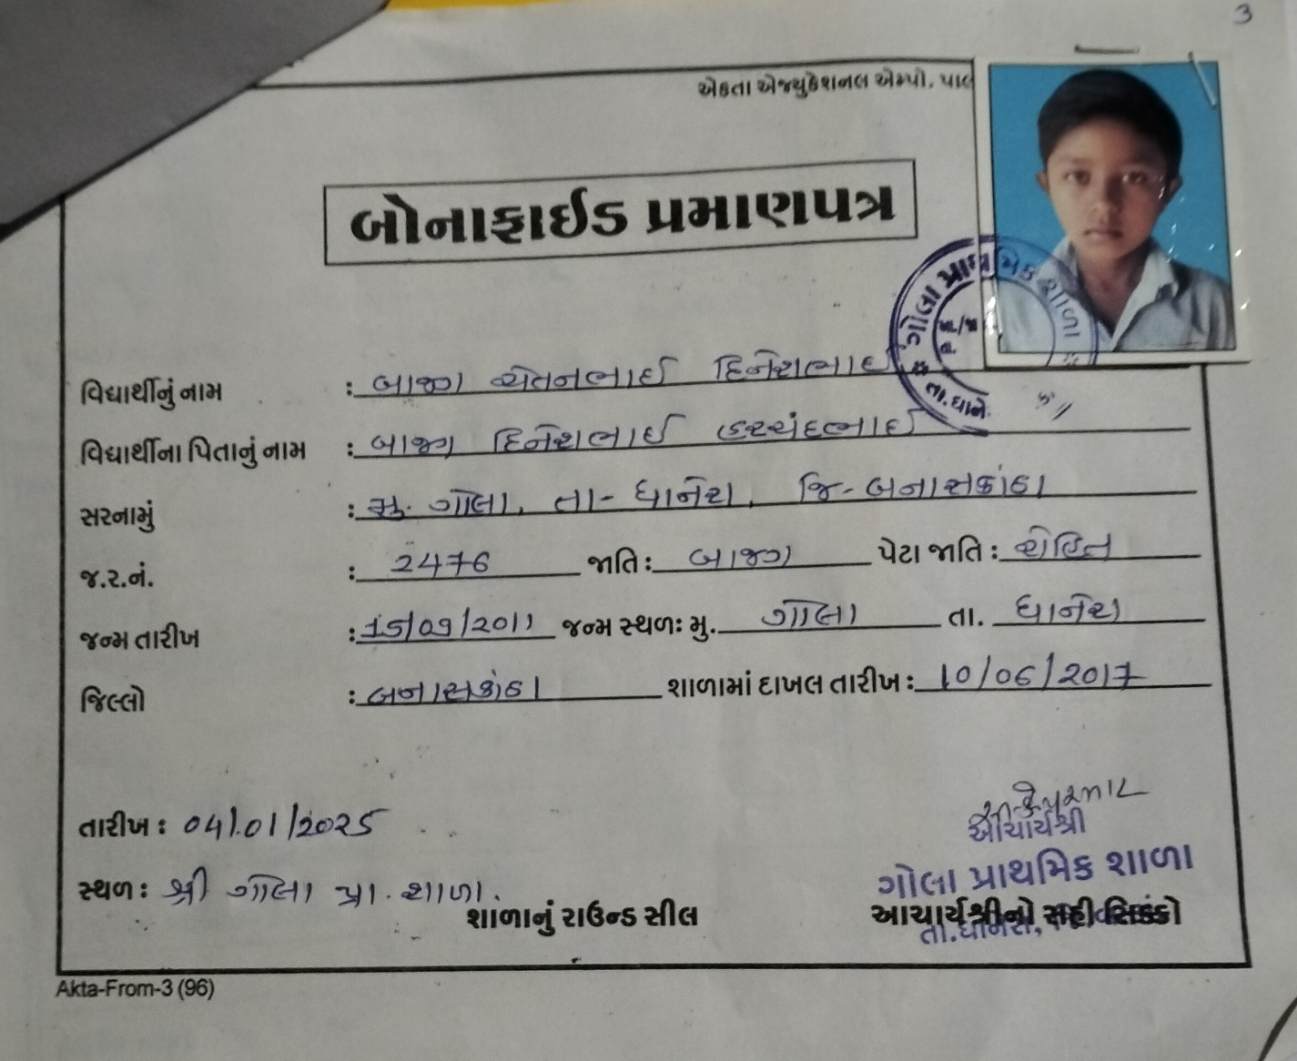 3
એકતા એજ્યુકેશનલ એમ્પો. પાલ
બોનાફાઈડ પ્રમાણપત્ર
ગોલા પ્રાથમિક શાળા
તા.ધાને
વિદ્યાર્થીનું નામ : બાજગ ચેતનભાઈ દિનેશભાઈ
વિદ્યાર્થીના પિતાનું નામ : બાજગ દિનેશભાઈ હરચંદભાઈ
સરનામું : મુ. ગોલા, તા- ધાનેરા, જિ- બનાસકાંઠા
જ.ર.નં. : 2476 જાતિ : બાજગ પેટા જાતિ :
જન્મ તારીખ : 15/09/2011 જન્મ સ્થળઃ મુ. ગોલા તા. ધાનેરા
જિલ્લો : બનાસકાંઠા શાળામાં દાખલ તારીખ : 10/06/2017
તારીખ : 04/01/2025
આચાર્યશ્રી
ગોલા પ્રાથમિક શાળા
સ્થળ : શ્રી ગોલા પ્રા. શાળા.
શાળાનું રાઉન્ડ સીલ આચાર્યશ્રીનો સહી સિક્કો
તા.ધાનેરા,
Akta-From-3 (96)